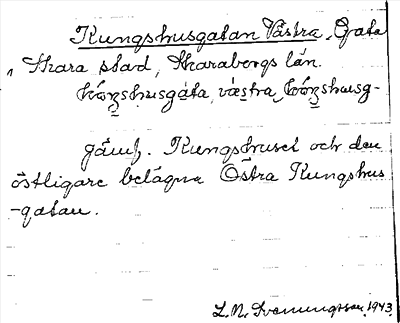 Kungshusgatan Västra, Gata
i Skara stad, Skaraborgs län.
västra,
jämf. Kungshuset och den
östligare belägna Östra Kungshus
-gatan.
L. N. Svenungsson. 1943.